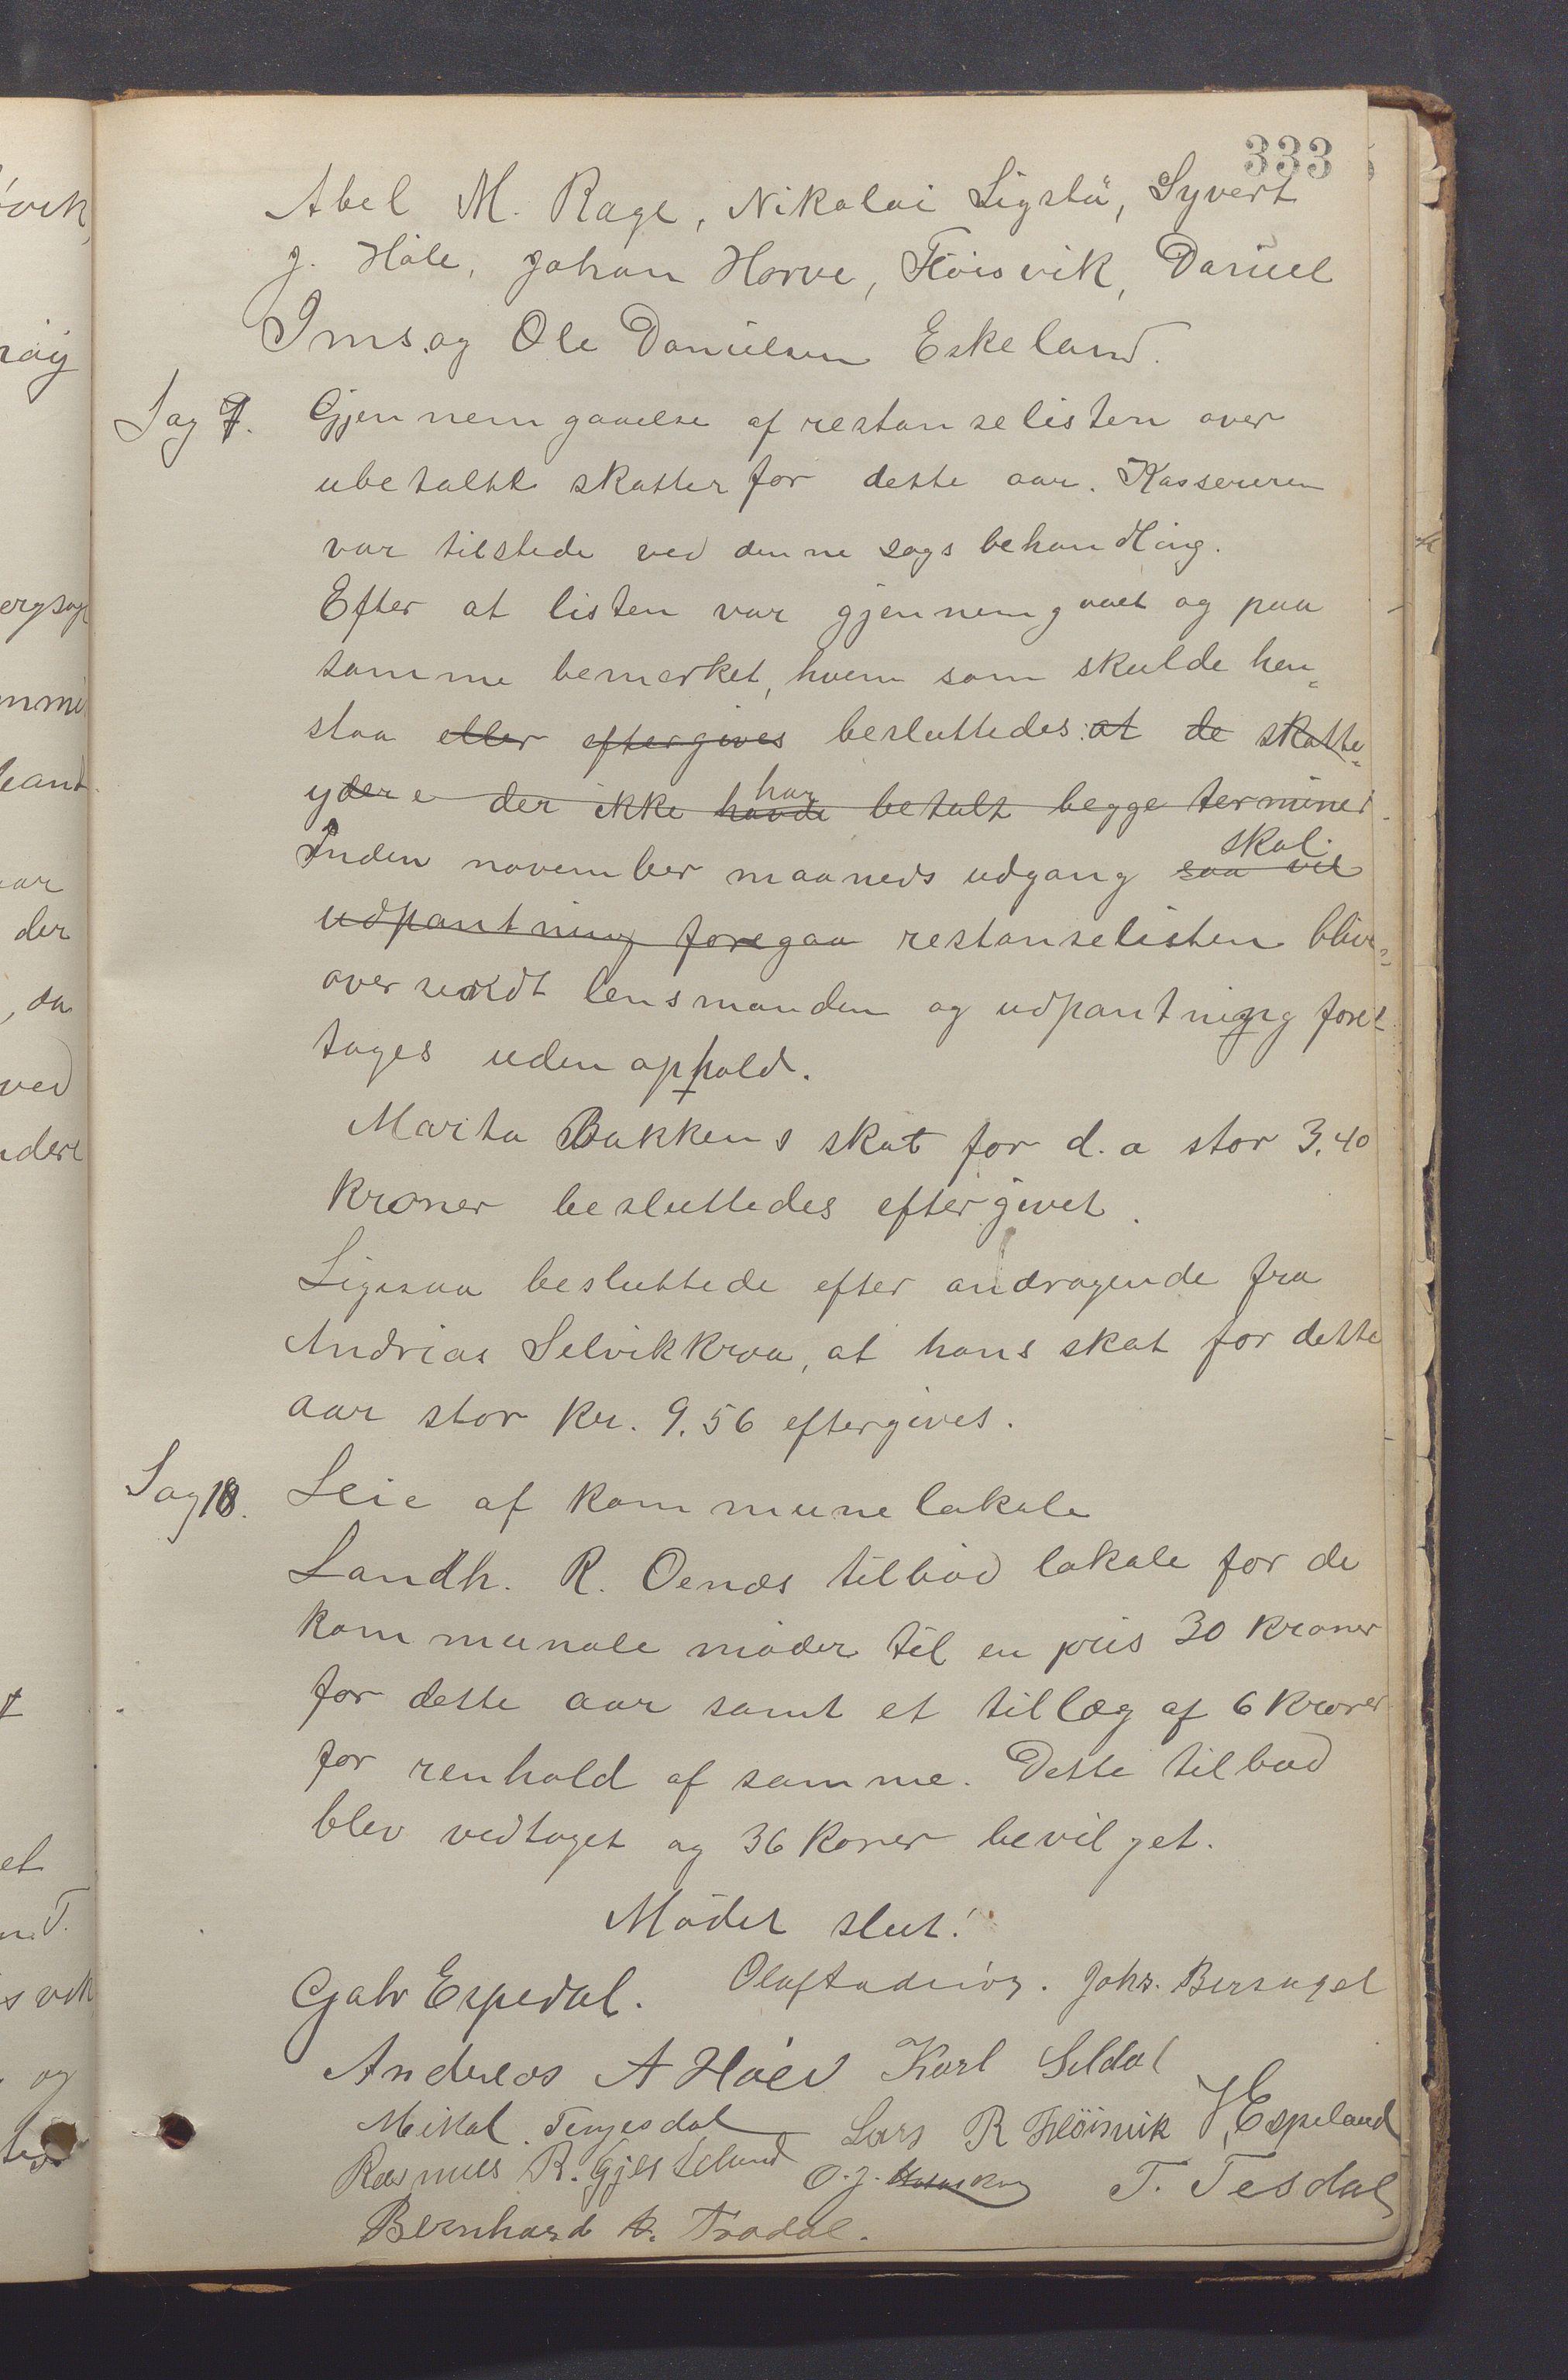 333
Abel M. Rage, Nikolai Ligstø, Syvert
J. Høle, Johan Horve, Fløisvik, Daniel
Ims og Ole Danielsen Eskeland.
Sag 7. Gjennemgaaelse af restanselisten over
ubetalte skatter for dette aar. Kassereren
var tilstede ved denne sags behandling.
Efter at listen var gjennemgaaet og paa
samme bemerket, hvem som skulde hen=
staa eller eftergives besluttedes: at de skatte=
ydere der ikke havde har betalt begge terminer
Inden november maaneds udgang saa vil skal
udpantning foregaa restanselisten blive
oversendt lensmanden og udpantning fore=
tages uden ophold.
Marta Bakkens skat for d. a stor 3.40
kroner besluttedes eftergivet.
Ligesaa besluttede efter andragende fra
Andreas Selvikkraa, at hans skat for dette
aar stor kr. 9.56 eftergives.
Sag 18. Leie af kommunelokale
Landh. R. Oenæs tilbød lokale for de
kommunale møder til en pris 30 kroner
for dette aar samt et tillæg af 6 kroner
for renhold af samme. Dette tilbud
blev vedtaget og 36 koner bevilget.
Mødet slut!
Gabr Espedal. Olaf Johs. Bersagel
Andreas A Høle Karl Seldal
Mikal Lars R Fløisvik Espeland
Rasmus R. Gjestelund O. J. T. Tesdal
Bernhard Tradal.